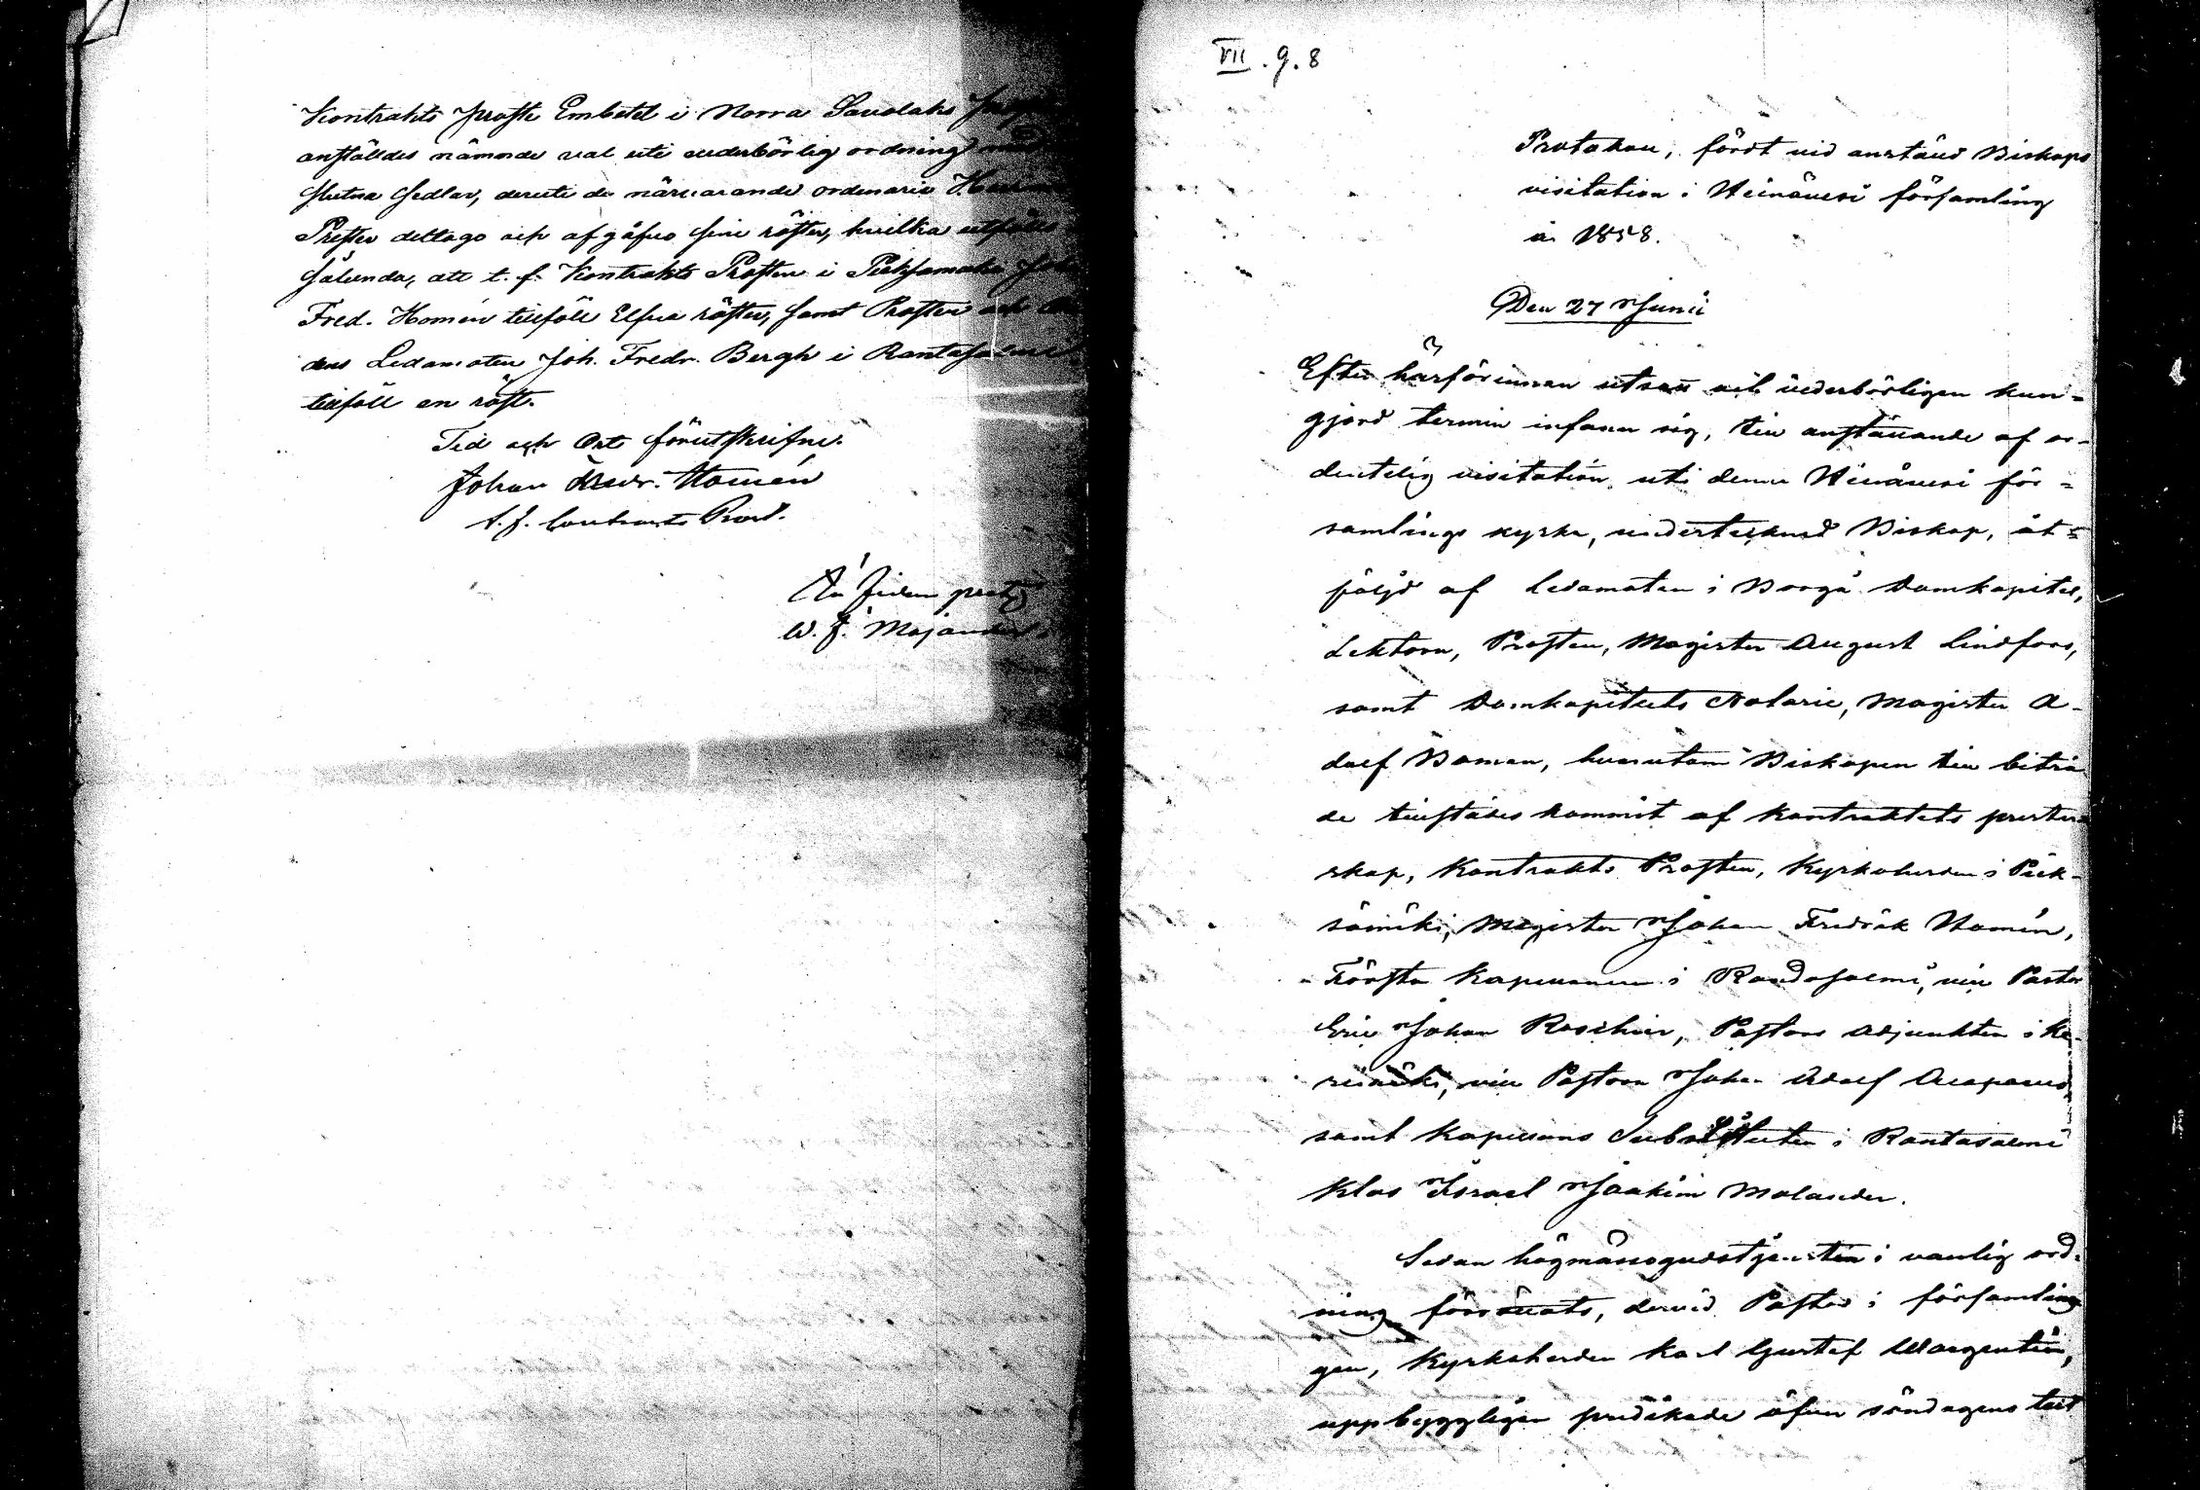 Kontrakts Prosts Embetet i Norra Savolaks
anställdes nämnde val uti vederbörlig ordning med
slutna sedlar, deruti de närvarande ordinarie
Prester deltogo och afgåfvo sine röster, hvilka utföllo
sålunda, att t. f. Kontrakts Prosten i Pieksamaki Joh.
Fred. Homén tillföll Elfva röster, samt Prosten och
dens Ledamoten Joh. Fredr. Bergh i Rantasalmi
tillföll en röst.
Tid och Ort förutskrifne.
Johan Fredr. Homén
t. f. Contracts Prost.
In fidem prot.
W. F. Majander
VII. g. 8
Protokoll, fördt vid anstäld Biskops
visitation i Heinävesi församling
år 1858.
Den 27 Junii
Efter härförinnan utsatt och vederbörligen kun-
gjord termin infann sig, till anställande af or-
dentelig visitation, uti denna Heinävesi för-
samlings kyrka, undertecknad Biskop, åt-
följd af Ledamoten i Borgå Domkapitel,
Lektorn, Prosten, Magister August Lindfors,
samt Domkapitlets Notarie, Magister A-
dolf Boman, hvarutom Biskopen till biträ
de tillstädes kommit af kontraktets prester-
skap, Kontrakts Prosten, Kyrkoherden i Piek-
sämäki, Magister Johan Fredrik Homén,
Första Kapellanen i Randasalmi, vice Pastor
Eric Johan Roschier, Pastors Adjunkten i Ke-
rimäki, vice Pastorn Johan Adolf
samt Kapellans Substituten i Rantasalmi
Klas Israel Joakim Molander.
Sedan högmässogudstjensten i vanlig ord-
ning förrättats, dervid Pastor i församlin-
gen, Kyrkoherden Karl Gustaf Wargentin,
uppbyggligen predikade öfver söndagens text